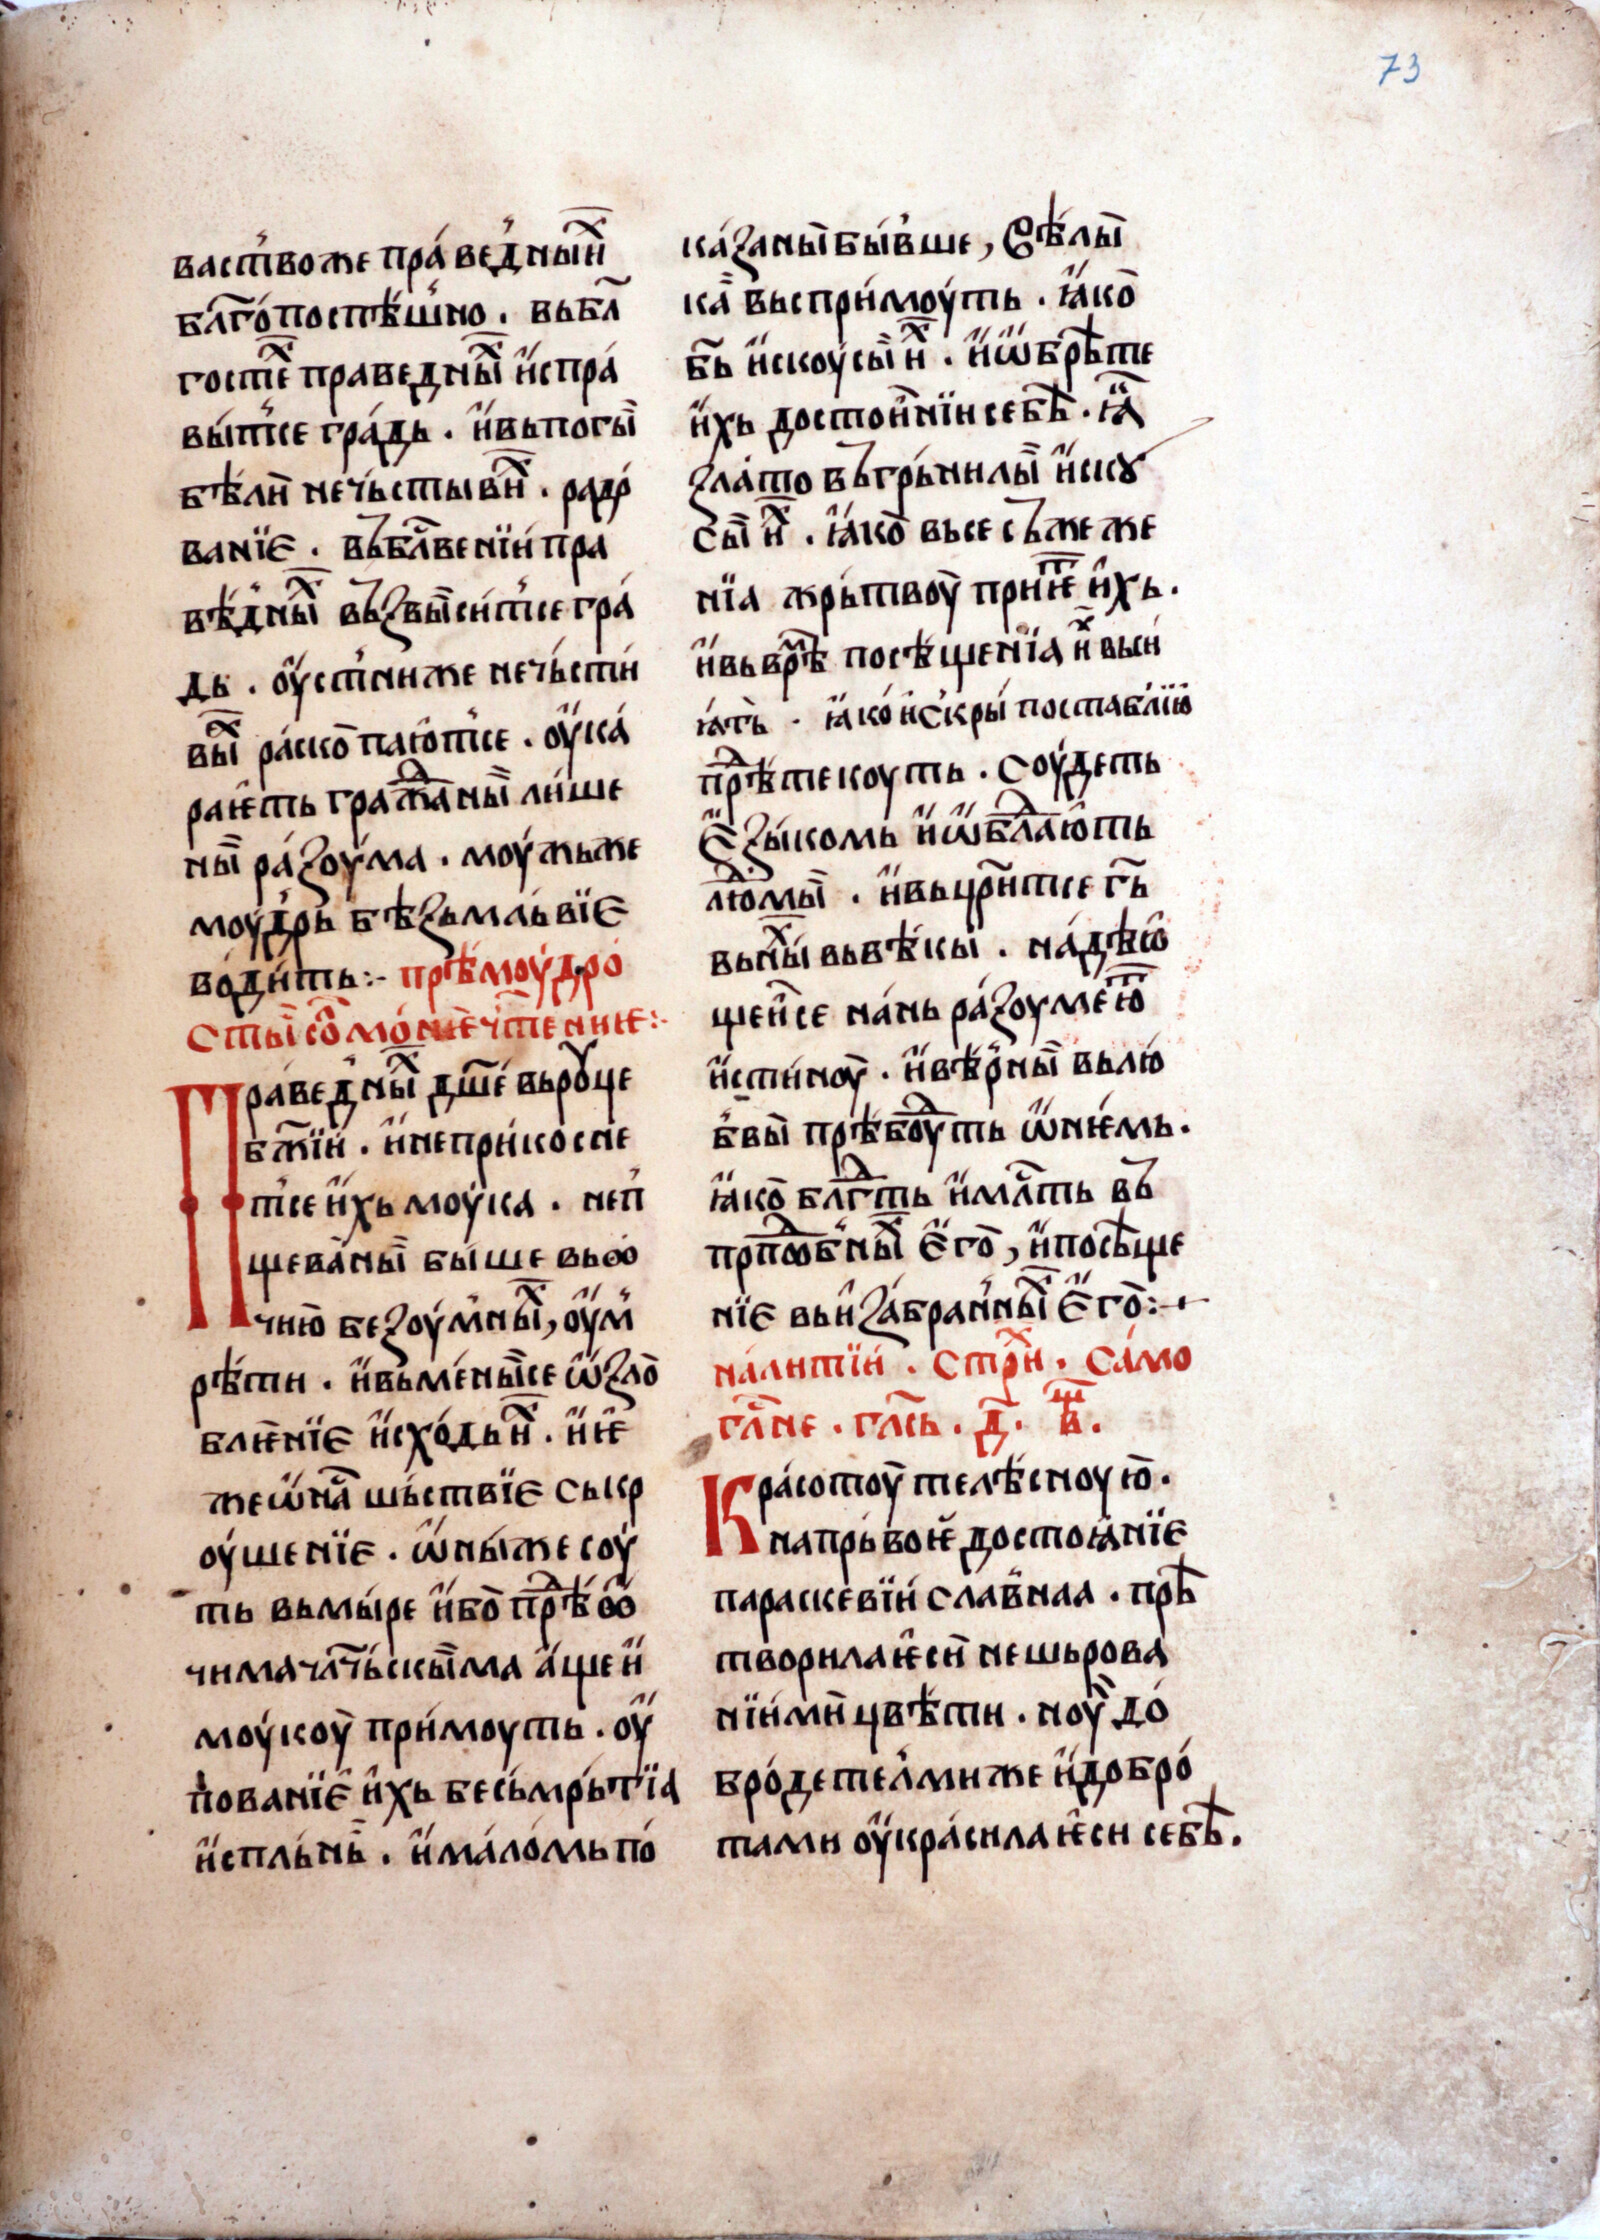 73
вастⷡ҇воже пра́ведныⷯи
бл҃го́поспѣ́шно. вьбл҃
гостеⷯ праведныⷯ и҆спра́
ви́тсе гра́дь. и҆вьпогы
бѣ́ли нечьстывиⷯ. радо́
ванїе. въбл҃венїи пра
вѣ́дныⷯ възвыси́тсе гра́
дь. оу҆стниже нечьсти́
выⷯ раскопаю҆тсе. оу҆ка́
раѥ҆ть гражⷣаны ли́ше
ны ра́зоу́ма. моу́жьже
моу́дрь бѣ́зьмль́вїе
во́ди́ть:- прѣ́моу́дро́
сты со҃мо́нѥ чⷭ҇тенѥ:-
Пра́ведныⷯ дш҃е́ вьроуце
бж҃їи. и҆непри́косне
тсе и҆хь моу́ка. неп
щева́ны бы́ше вьꙫ
чию̀ безоу́мныⷯ, оу҆м
рѣ́ти. и҆вьме́нысе ѿзло
блѥ́нїе и҆схо́дьиⷯ. и҆ѥ҆
жеѿна́ шь́ствїе ськр
оу́шенїе. ѡ҆ны́жесоу́
ть вьмы́ре и҆бо прѣⷣꙫ
чима чл҃чь́скыма а҆щеи҆
моу́коу при́моуть. оу҆
пованїе и҆хь бесьмрь́тїа
и҆спль́нь. и҆ма́ло́мьпо́
ка́заныбы́вше, Ѕѣ́лы
ка́ вьспри́моу́ть. ꙗ҆ко
бь҃ и҆скоу́сы иⷯ. и҆ѡ҆брѣ́те
и҆хь досто́йнїи себѣ̀. ꙗ҆
зла́то вьгрь́нилы и҆скꙋ
сы иⷯ. ꙗ҆ко вьсесъжеже
нїа жрь́твоу̀ приѥⷮ и҆хь.
и҆вьврⷨѣ посѣ́щенїа иⷯ выси
ꙗ҆ть. ꙗ҆ко и҆́скры поставлїю
прⷣѣ́текоуть. Соу́деть
е҆зы́комь и҆ѡ҆блⷣаю҆ть
люⷣмы. и҆вьцр҃итсе гь҃
вьниⷯы вьвѣ́кы. на́дѣю
щеи҆се на́нь ра́зоумеюⷮ
и҆́сти́ноу̀. и҆вѣ́рны вьлю
бвы прѣ́боуⷣть ѡ҆нѥ́мь.
ꙗ҆ко блгⷣть и҆мл҃ть въ
прпⷣобныⷯ е҆го̀, и҆посѣще
нїе вьи҆за́бранныⷯ е҆го̀:-
на́литїи. Стриⷯ. Са́мо
гл҃не. гл҃сь. д҃. тв҃.
Кра́сотоу̀ телѣ́сноую̀.
напрь́воѥ достоꙗ́нїе
параскевїи́ сла́вная. прѣ
творилаѥ҆си нешьрова
нїи́ми цвѣ́ти. ноу̀ до́
бро́детелмиже и҆добро́
тами оу҆кра́силаѥ҆си себѣ̀.